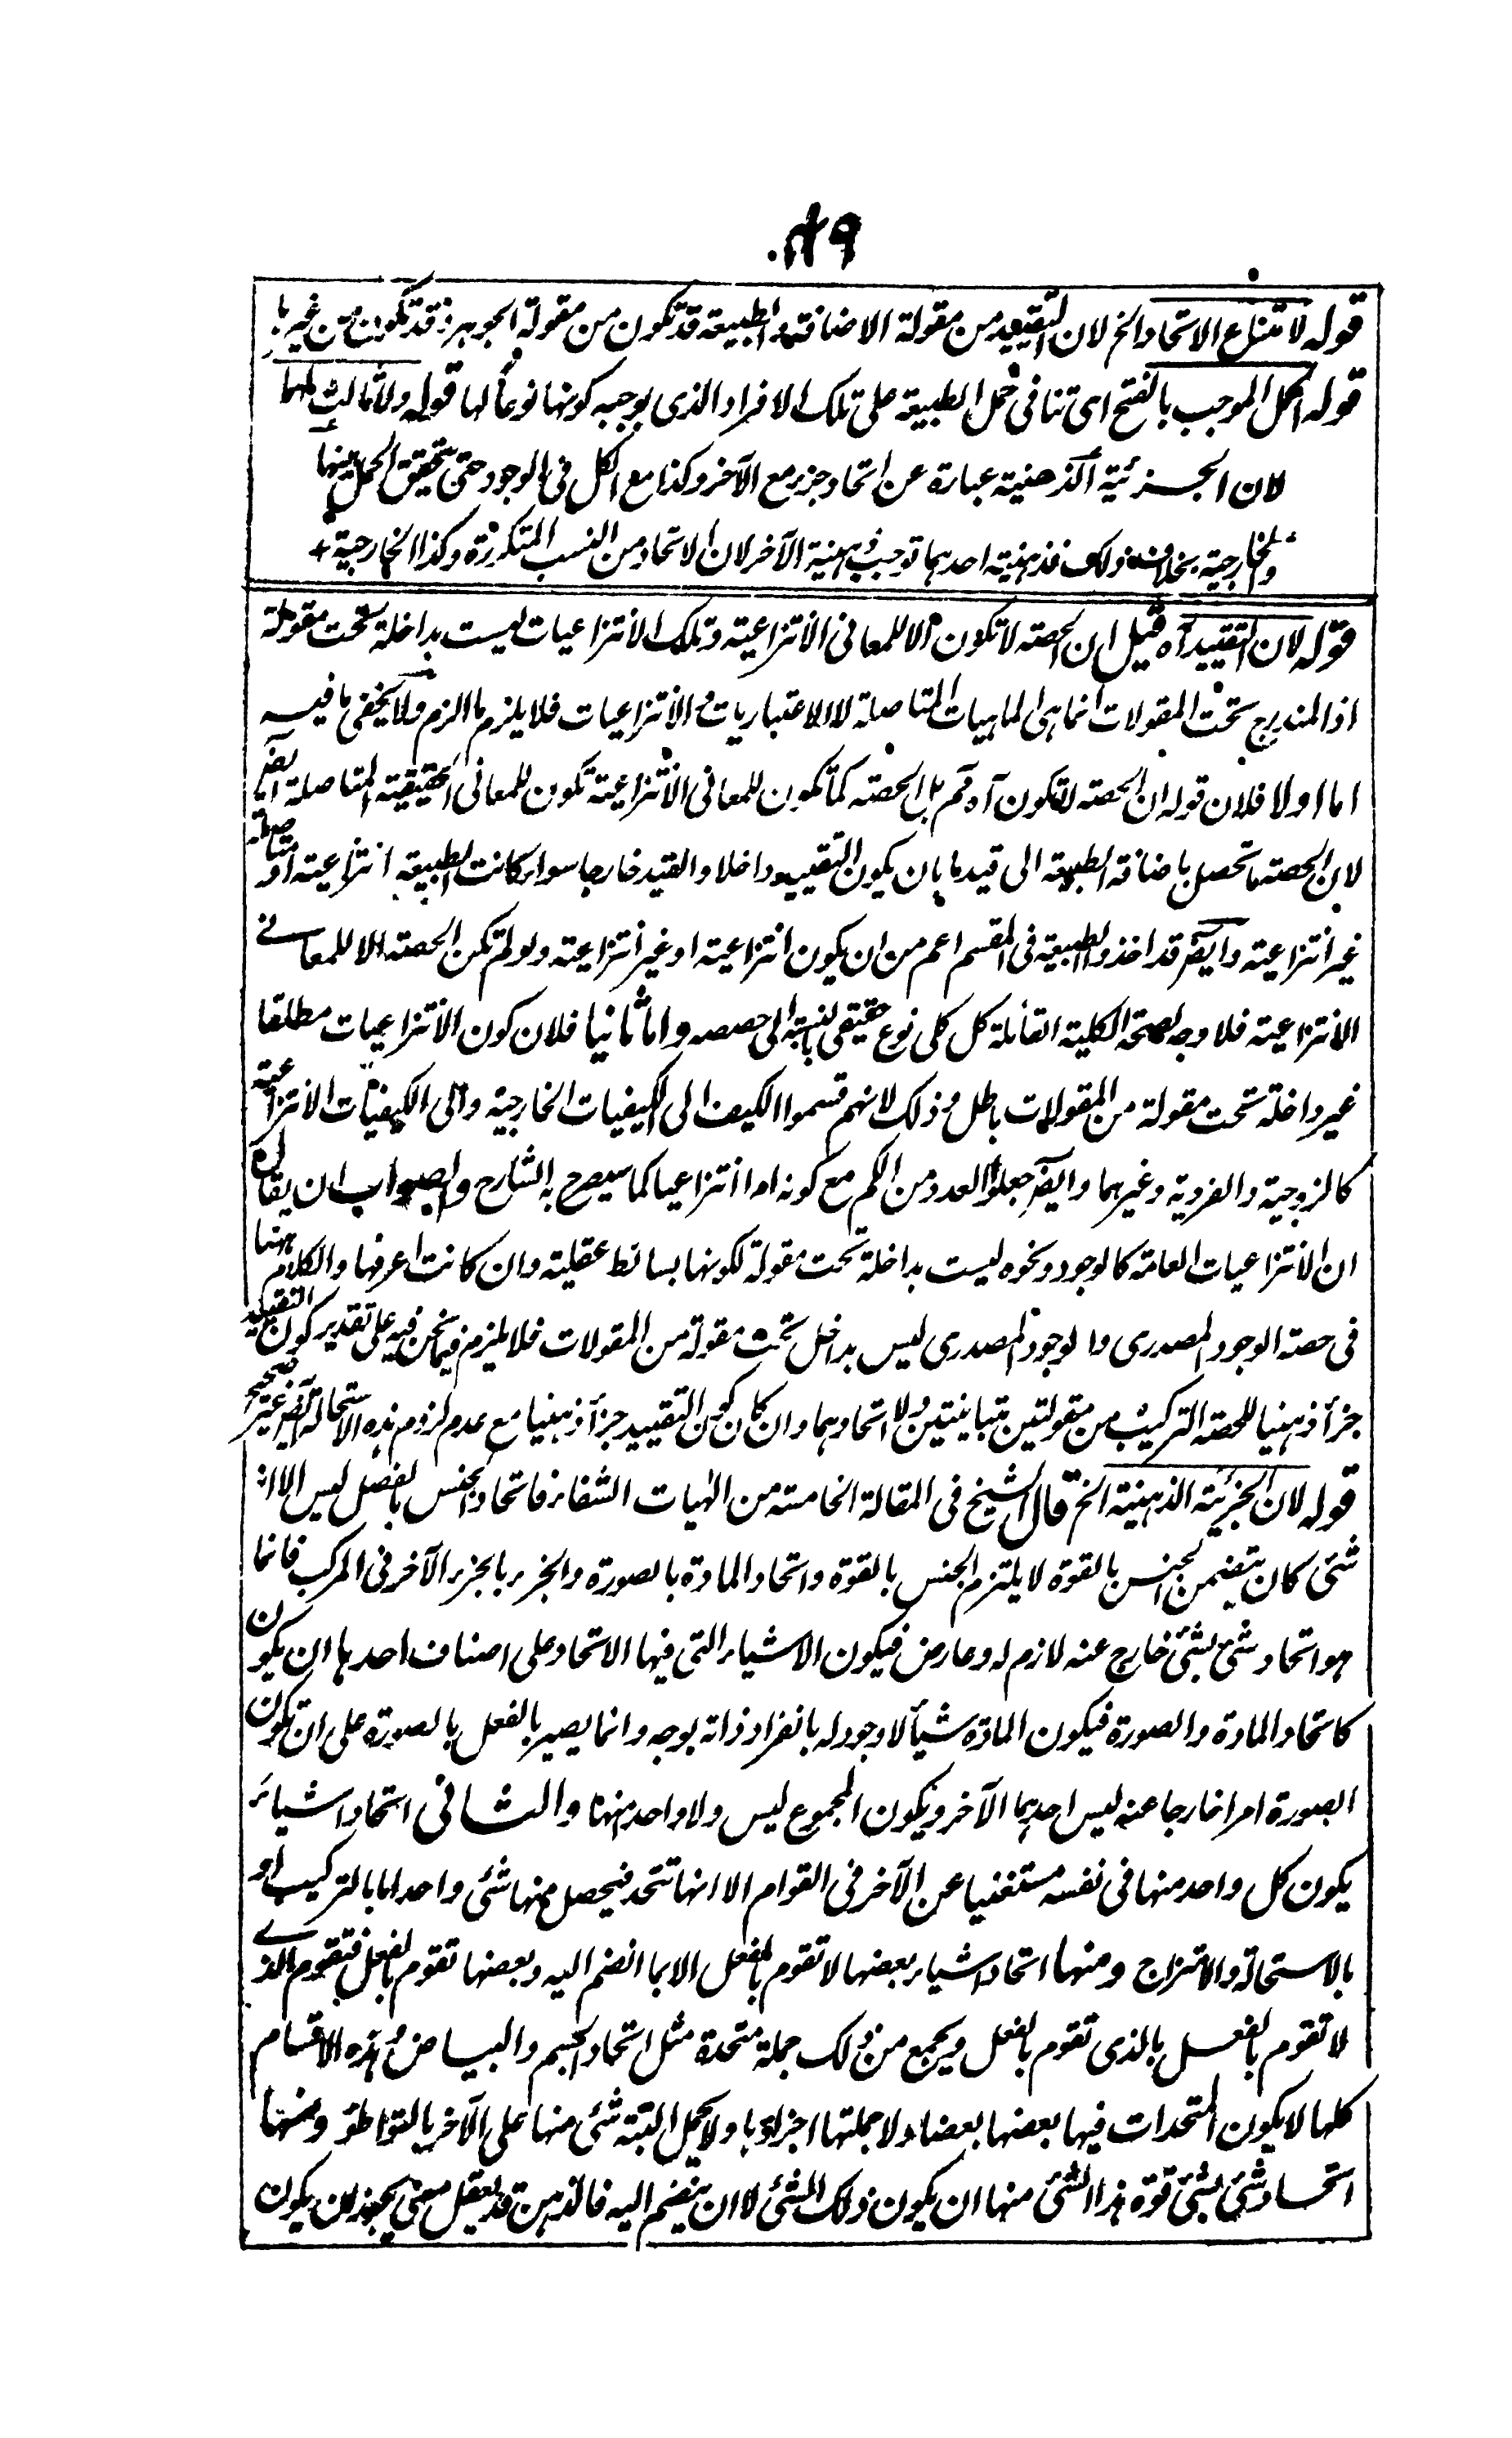 قوله لامتناع الاتحاد الخ لان التقييد من مقولة الاضافة والطبيعة قد تكون من مقولة الجوهر وقد تكون من غيرها
قوله الحمل الموجب بالفتح اى تنافى حمل الطبيعة على تلك الافراد الذى يوجبه كونها نوعاً لها قوله ولا ثالث لهما
لان الجزئية الذهنية عبارة عن اتحاد جزء مع الآخر وكذا مع الكل فى الوجود حتى يتحقق الحمل بينها
والخارجية بخلاف ذلك فذهنية احدهما توجب ذهنية الآخر لان الاتحاد من النسب المتكررة وكذا الخارجية +
قوله لان التقييد آه قيل ان الحصة لا تكون الا للمعانى الانتزاعية وتلك الانتزاعيات ليست بداخلة تحت مقولة
اذ المندرج تحت المقولات انما هى الماهيات المتاصلة لا الاعتباريات والانتزاعيات فلا يلزم ما الزم ولا يخفى ما فيه
اما اولا فلان قوله ان الحصة لا تكون آه مم بل الحصة كما تكون للمعانى الانتزاعية تكون للمعانى الحقيقية المتاصلة ايضا
لان الحصة ما تحصل باضافة الطبيعة الى قيد ما بان يكون التقييد داخلا والقيد خارجا سواء كانت الطبيعة انتزاعية او متاصلة
غير انتزاعية وايضا قد اخذوا الطبيعة فى المقسم اعم من ان يكون انتزاعية او غير انتزاعية ولو لم تكن الحصة الا للمعانے
الانتزاعية فلا وجه لصحة الكلية القائلة كل كلى نوع حقيقى بالنسبة الى حصصه واما ثانيا فلان كون الانتزاعيات مطلقا
غير داخلة تحت مقولة من المقولات باطل وذلك لانهم قسموا الكيف الى الكيفيات الخارجية والى الكيفيات الانتزاعية
كالزوجية والفردية وغيرهما وايضا جعلوا العدد من الكم مع كونه امرا انتزاعيا كما سيصرح به الشارح والصواب ان يقال
ان الانتزاعيات العامة كالوجود ونحوه ليست بداخلة تحت مقولة لكونها بسائط عقلية وان كانت اعرفها والكلام ههنا
فى حصة الوجود المصدرى والوجود المصدرى ليس بداخل تحت مقولة من المقولات فلا يلزم فيما نحن فيه على تقدير كون التقييد
جزأ ذهنيا للحصة التركيب من مقولتين متباينتين ولا اتحادهما وان كان كون التقييد جزأ ذهنيا مع عدم لزوم هذه الاستحالة ايضا غير صحيح
قوله لان الجزئية الذهنية الخ قال الشيخ فى المقالة الخامسة من الٰهيات الشفاء فاتحاد الجنس بالفصل ليس الا انه
شئ كان يتضمن الجنس بالقوة لا يلتزم الجنس بالقوة واتحاد المادة بالصورة والجزء بالجزء الآخر فى المركب فانما
هو اتحاد شئ بشئ خارج عنه لازم له وعارض فيكون الاشياء التى فيها الاتحاد على اصناف احدها ان يكون
كاتحاد المادة والصورة فيكون المادة شيأ لا وجود له بانفراد ذاته بوجه وانما يصير بالفعل بالصورة على ان تكون
الصورة امرا خارجا عنه ليس احدهما الآخر ويكون المجموع ليس ولا واحد منهما والثانى اتحاد اشياء
يكون كل واحد منها فى نفسه مستغنيا عن الآخر فى القوام الا انها تتحد فيحصل منها شئ واحد اما بالتركيب او
بالاستحالة والامتزاج ومنها اتحاد اشياء بعضها لا تقوم بالفعل الا بما انضم اليه وبعضها تقوم بالفعل فتقوم الذے
لا تقوم بالفعل بالذى تقوم بالفعل ويجمع من ذلك جملة متحدة مثل اتحاد الجسم والبياض وهذه الاقسام
كلها لا يكون المتحدات فيها بعضها بعضا ولا جملتها اجزاؤها ولا يحمل البتة شئ منها على الآخر بالتواطؤ ومنها
اتحاد شئ بشئ قوة هذا الشئ منها ان يكون ذلك الشئ لا ان ينضم اليه فالذهن قد يعقل معنى يجوز ان يكون